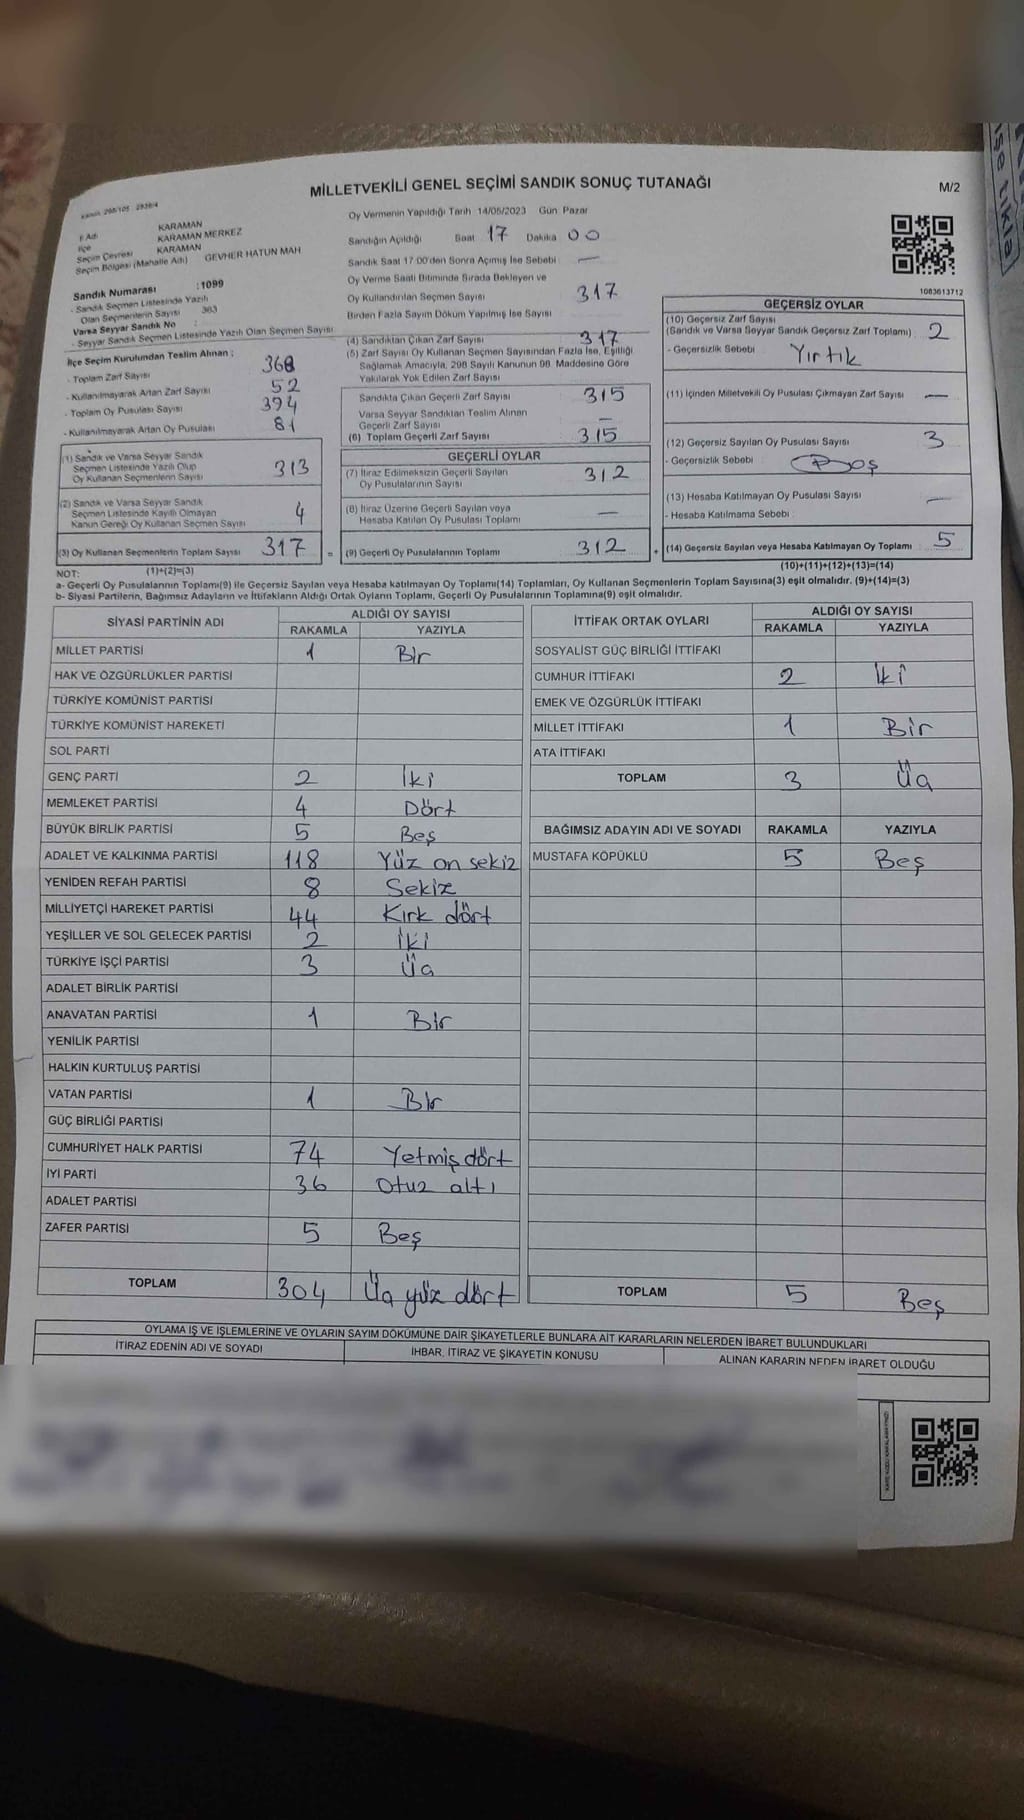 MİLLETVEKİLİ GENEL SEÇİMİ SANDIK SONUÇ TUTANAĞI
M/2
İl Adı KARAMAN
İlçe KARAMAN MERKEZ
Seçim Çevresi KARAMAN
Seçim Bölgesi (Mahalle Adı) GEVHER HATUN MAH
Sandık Numarası :1099
- Sandık Seçmen Listesinde Yazılı
Olan Seçmenlerin Sayısı 363
Varsa Seyyar Sandık No :
- Seyyar Sandık Seçmen Listesinde Yazılı Olan Seçmen Sayısı
İlçe Seçim Kurulundan Teslim Alınan :
- Toplam Zarf Sayısı 368
- Kullanılmayarak Artan Zarf Sayısı 52
- Toplam Oy Pusulası Sayısı 394
- Kullanılmayarak Artan Oy Pusulası 81
(1) Sandık ve Varsa Seyyar Sandık
Seçmen Listesinde Yazılı Olup
Oy Kullanan Seçmenlerin Sayısı 313
(2) Sandık ve Varsa Seyyar Sandık
Seçmen Listesinde Kayıtlı Olmayan
Kanun Gereği Oy Kullanan Seçmen Sayısı 4
(3) Oy Kullanan Seçmenlerin Toplam Sayısı 317 =
(1)+(2)=(3)
Oy Vermenin Yapıldığı Tarih 14/05/2023 Gün Pazar
Sandığın Açıldığı Saat 17 Dakika 00
Sandık Saat 17:00'den Sonra Açımış İse Sebebi —
Oy Verme Saati Bitiminde Sırada Bekleyen ve
Oy Kullandırılan Seçmen Sayısı 317
Birden Fazla Sayım Döküm Yapılmış İse Sayısı
(4) Sandıktan Çıkan Zarf Sayısı 317
(5) Zarf Sayısı Oy Kullanan Seçmen Sayısından Fazla İse, Eşitliği
Sağlamak Amacıyla, 298 Sayılı Kanunun 98. Maddesine Göre
Yakılarak Yok Edilen Zarf Sayısı
Sandıkta Çıkan Geçerli Zarf Sayısı 315
Varsa Seyyar Sandıktan Teslim Alınan
Geçerli Zarf Sayısı —
(6) Toplam Geçerli Zarf Sayısı 315
GEÇERLİ OYLAR
(7) İtiraz Edilmeksizin Geçerli Sayılan
Oy Pusulalarının Sayısı 312
(8) İtiraz Üzerine Geçerli Sayılan veya
Hesaba Katılan Oy Pusulası Toplamı —
(9) Geçerli Oy Pusulalarının Toplamı 312 +
1083613712
GEÇERSİZ OYLAR
(10) Geçersiz Zarf Sayısı
(Sandık ve Varsa Seyyar Sandık Geçersiz Zarf Toplamı) 2
- Geçersizlik Sebebi Yırtık
(11) İçinden Milletvekili Oy Pusulası Çıkmayan Zarf Sayısı —
(12) Geçersiz Sayılan Oy Pusulası Sayısı 3
- Geçersizlik Sebebi Boş
(13) Hesaba Katılmayan Oy Pusulası Sayısı —
- Hesaba Katılmama Sebebi :
(14) Geçersiz Sayılan veya Hesaba Katılmayan Oy Toplamı 5
(10)+(11)+(12)+(13)=(14)
NOT:
a- Geçerli Oy Pusulalarının Toplamı(9) ile Geçersiz Sayılan veya Hesaba katılmayan Oy Toplamı(14) Toplamları, Oy Kullanan Seçmenlerin Toplam Sayısına(3) eşit olmalıdır. (9)+(14)=(3)
b- Siyasi Partilerin, Bağımsız Adayların ve İttifakların Aldığı Ortak Oyların Toplamı, Geçerli Oy Pusulalarının Toplamına(9) eşit olmalıdır.
SİYASİ PARTİNİN ADI ALDIĞI OY SAYISI
RAKAMLA YAZIYLA
MİLLET PARTİSİ 1 Bir
HAK VE ÖZGÜRLÜKLER PARTİSİ
TÜRKİYE KOMÜNİST PARTİSİ
TÜRKİYE KOMÜNİST HAREKETİ
SOL PARTİ
GENÇ PARTİ 2 İki
MEMLEKET PARTİSİ 4 Dört
BÜYÜK BİRLİK PARTİSİ 5 Beş
ADALET VE KALKINMA PARTİSİ 118 Yüz on sekiz
YENİDEN REFAH PARTİSİ 8 Sekiz
MİLLİYETÇİ HAREKET PARTİSİ 44 Kırk dört
YEŞİLLER VE SOL GELECEK PARTİSİ 2 İki
TÜRKİYE İŞÇİ PARTİSİ 3 Üç
ADALET BİRLİK PARTİSİ
ANAVATAN PARTİSİ 1 Bir
YENİLİK PARTİSİ
HALKIN KURTULUŞ PARTİSİ
VATAN PARTİSİ 1 Bir
GÜÇ BİRLİĞİ PARTİSİ
CUMHURİYET HALK PARTİSİ 74 Yetmiş dört
İYİ PARTİ 36 Otuz altı
ADALET PARTİSİ
ZAFER PARTİSİ 5 Beş
TOPLAM 304 Üç yüz dört
İTTİFAK ORTAK OYLARI ALDIĞI OY SAYISI
RAKAMLA YAZIYLA
SOSYALİST GÜÇ BİRLİĞİ İTTİFAKI
CUMHUR İTTİFAKI 2 İki
EMEK VE ÖZGÜRLÜK İTTİFAKI
MİLLET İTTİFAKI 1 Bir
ATA İTTİFAKI
TOPLAM 3 Üç
BAĞIMSIZ ADAYIN ADI VE SOYADI RAKAMLA YAZIYLA
MUSTAFA KÖPÜKLÜ 5 Beş
TOPLAM 5 Beş
OYLAMA İŞ VE İŞLEMLERİNE VE OYLARIN SAYIM DÖKÜMÜNE DAİR ŞİKAYETLERLE BUNLARA AİT KARARLARIN NELERDEN İBARET BULUNDUKLARI
İTİRAZ EDENİN ADI VE SOYADI İHBAR, İTİRAZ VE ŞİKAYETİN KONUSU ALINAN KARARIN NEDEN İBARET OLDUĞU
işe tıkla